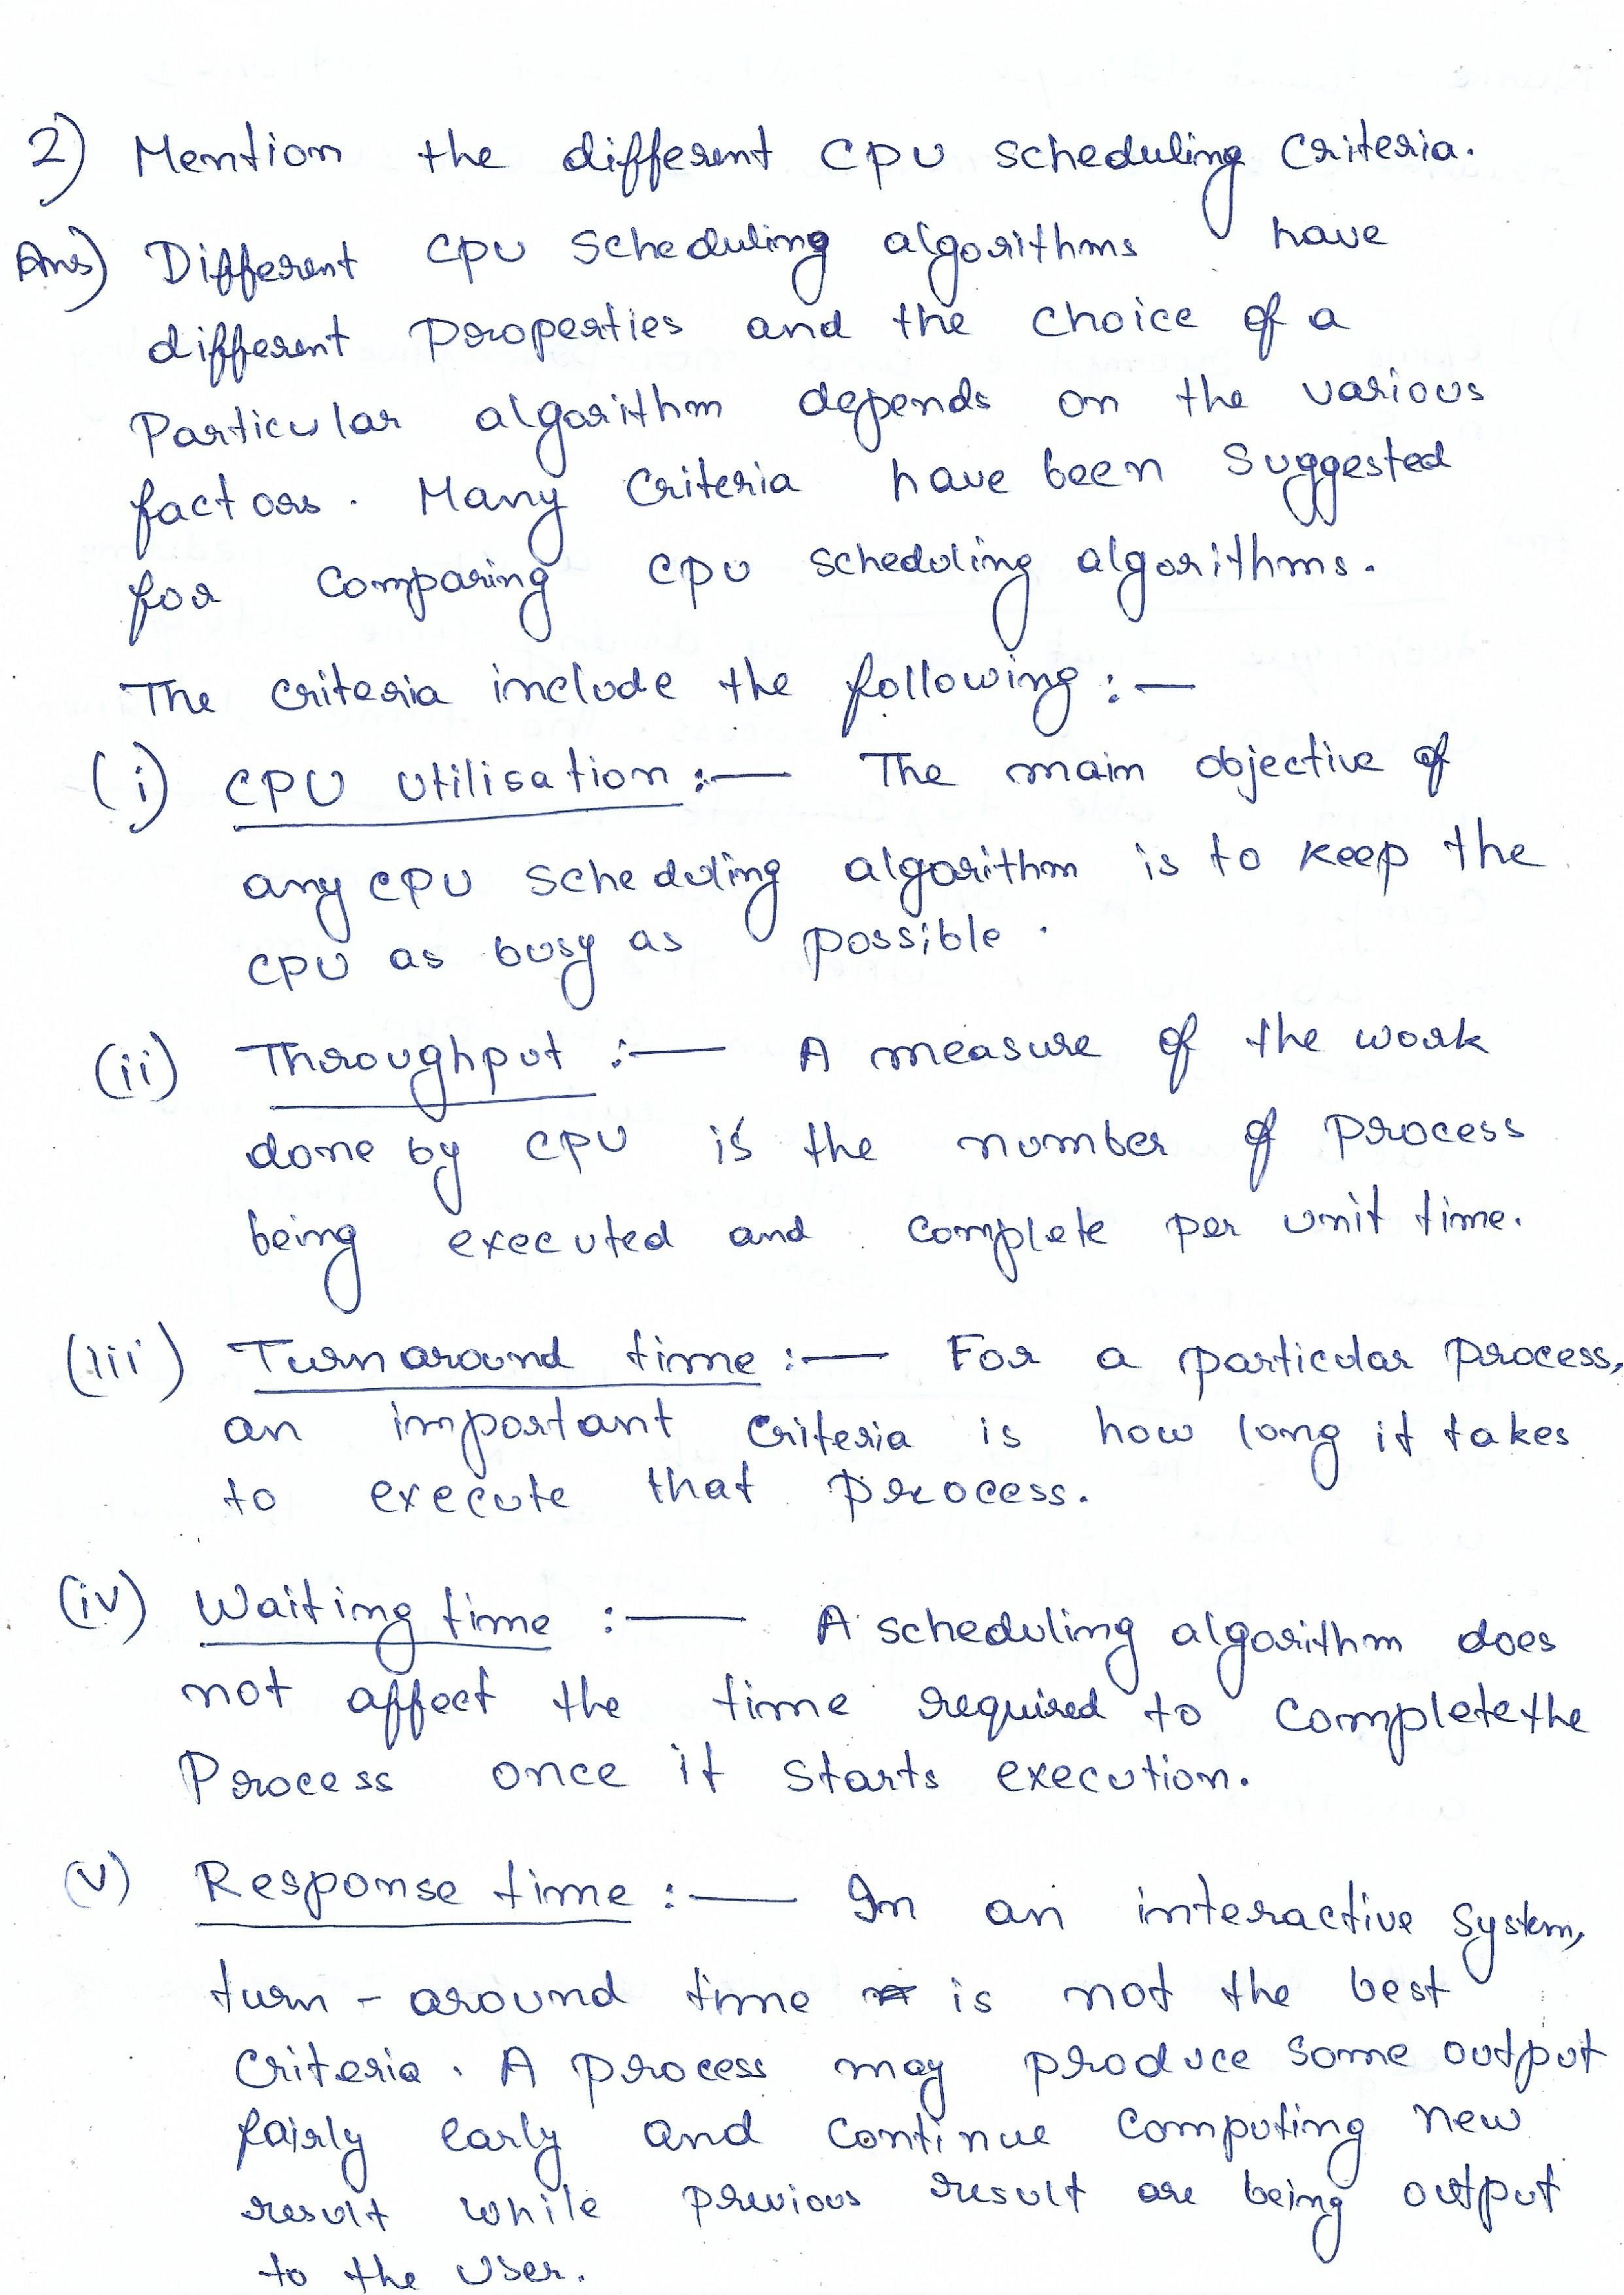 2) Mention the different CPU scheduling criteria.
Ans) Different CPU scheduling algorithms have
different properties and the choice of a
Particular algorithm depends on the various
factors. Many criteria have been suggested
for comparing CPU scheduling algorithms.
The criteria include the following :—
(i) CPU utilisation :— The main objective of
any CPU scheduling algorithm is to keep the
CPU as busy as possible.
(ii) Throughput :— A measure of the work
done by CPU is the number of process
being executed and complete per unit time.
(iii) Turnaround time :— For a particular process,
an important criteria is how long it takes
to execute that process.
(iv) Waiting time :— A scheduling algorithm does
not affect the time required to complete the
Process once it starts execution.
(v) Response time :— In an interactive system,
turn-around time is not the best
criteria. A process may produce some output
fairly early and continue computing new
result while previous result are being output
to the user.